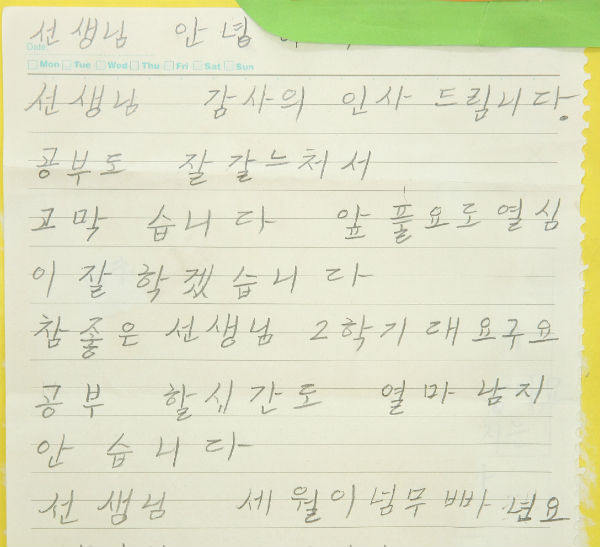 선생님 안녕
Date.
Mon Tue Wed Thu Fri Sat Sun
선생님 감사의 인사 드림니다.
공부도 잘 갈느처서
고막 습니다 앞 풀요도열심
이 잘 학겠습니다
참좋은 선생님 2학기 대요구요
공부 할싯간도 열마 남지
안 습니다
선 생님 세월이넘무 빠 년요